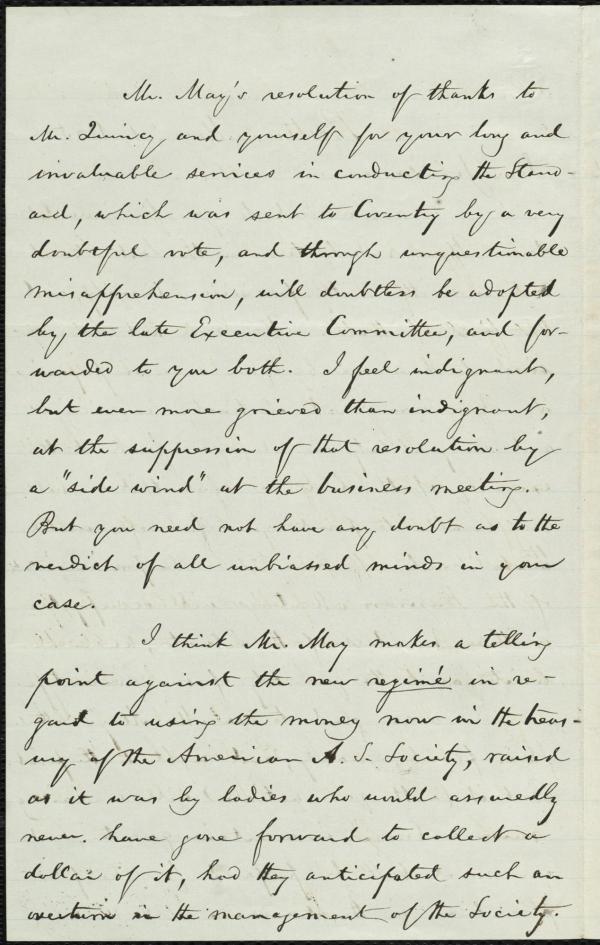 Mr. May's resolution of thanks to
Mr. Quincy and yourself for your long and
invaluable services in conducting the Stand-
ard, which was sent to Coventry by a very
doubtful vote, and through unquestionable
misapprehension, will doubtless be adopted
by the late Executive Committee, and for-
warded to you both. I feel indignant,
but even more grieved than indignant,
at the suppression of that resolution by
a "side wind" at the business meeting.
But you need not have any doubt as to the
verdict of all unbiassed minds in your
case.
I think Mr. May makes a telling
point against the new regimé in re-
gard to using the money now in the treas-
ury of the American A. S. Society, raised
as it was by ladies who would assuredly
never have gone forward to collect a
dollar of it, had they anticipated such an
overturn in the management of the Society.